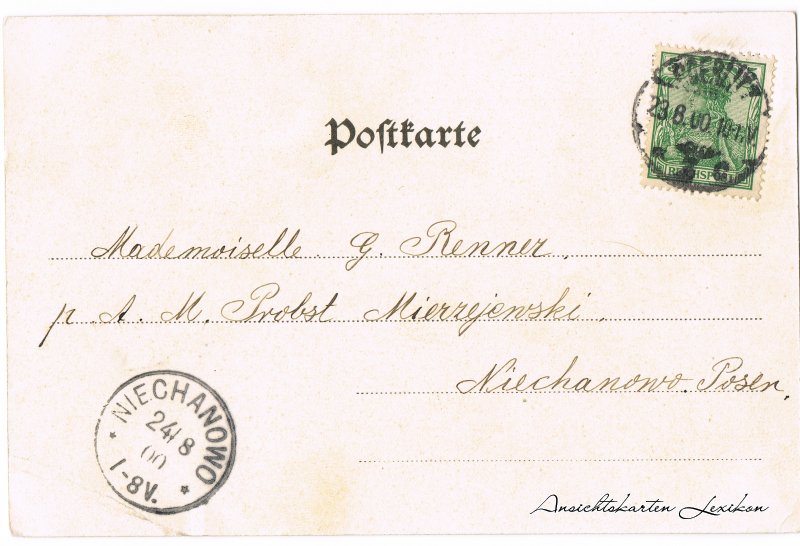 Postkarte
BERLIN
23.8.00.
REICHSPOST
Mademoiselle G. Renner,
p. A. M. Probst Mierzejewski,
Niechanowo. Posen.
NIECHANOWO
24/8
00
1-8V.
Ansichtskarten Lexikon